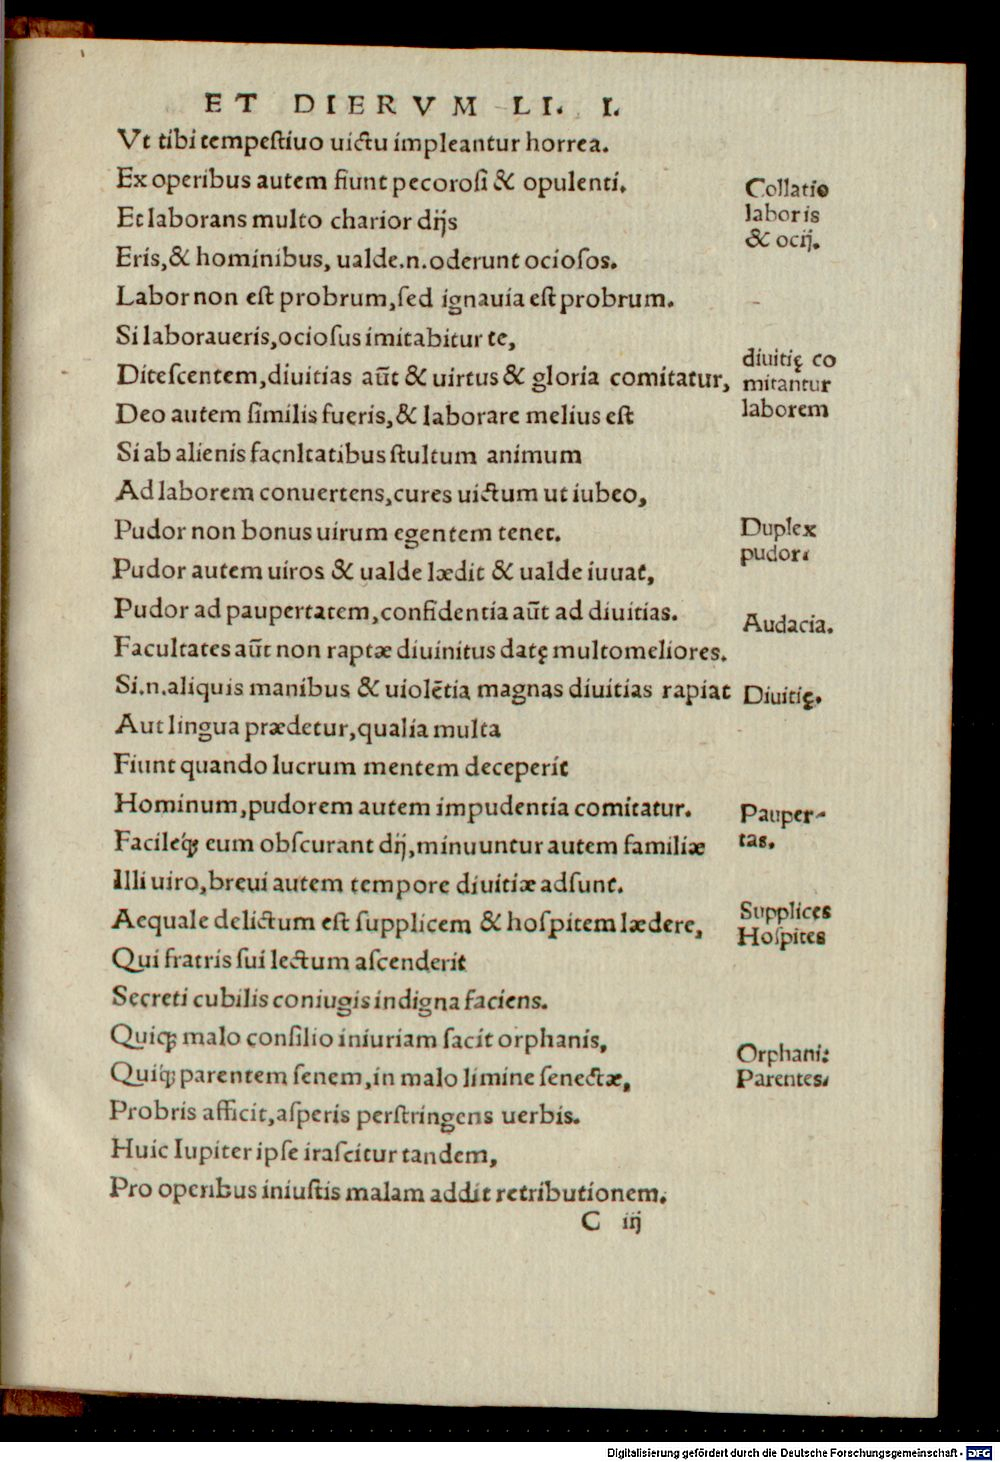 ET DIERVM LI. I.
Vt tibi tempeſtiuo uictu impleantur horrea.
Ex operibus autem fiunt pecoroſi & opulenti.
Et laborans multo charior dijs
Eris, & hominibus, ualde.n.oderunt ocioſos.
Labor non eſt probrum, ſed ignauia eſt probrum.
Si laboraueris, ocioſus imitabitur te,
Diteſcentem, diuitias aūt & uirtus & gloria comitatur,
Deo autem ſimilis fueris, & laborare melius eſt
Si ab alienis facnltatibus ſtultum animum
Ad laborem conuertens, cures uictum ut iubeo,
Pudor non bonus uirum egentem tenet.
Pudor autem uiros & ualde lædit & ualde iuuat,
Pudor ad paupertatem, confidentia aūt ad diuitias.
Facultates aūt non raptæ diuinitus datę multomeliores.
Si.n.aliquis manibus & uiolētia magnas diuitias rapiat
Aut lingua prædetur, qualia multa
Fiunt quando lucrum mentem deceperit
Hominum, pudorem autem impudentia comitatur.
Facileq́ꝫ eum obſcurant dij, minuuntur autem familiæ
Illi uiro, breui autem tempore diuitiæ adſunt.
Aequale delictum eſt ſupplicem & hoſpitem lædere,
Qui fratris ſui lectum aſcenderit
Secreti cubilis coniugis indigna faciens.
Quiqꝫ malo conſilio iniuriam facit orphanis,
Quiq́ꝫ parentem ſenem, in malo limine ſenectæ,
Probris afficit, aſperis perſtringens uerbis.
Huic Iupiter ipſe iraſcitur tandem,
Pro operibus iniuſtis malam addit retributionem.
C iij
Collatio
laboris
& ocij.
diuitię co
mitantur
laborem
Duplex
pudor.
Audacia.
Diuitię.
Pauper-
tas.
Supplices
Hoſpites
Orphani:
Parentes.
Digitalisierung gefördert durch die Deutsche Forschungsgemeinschaft - DFG